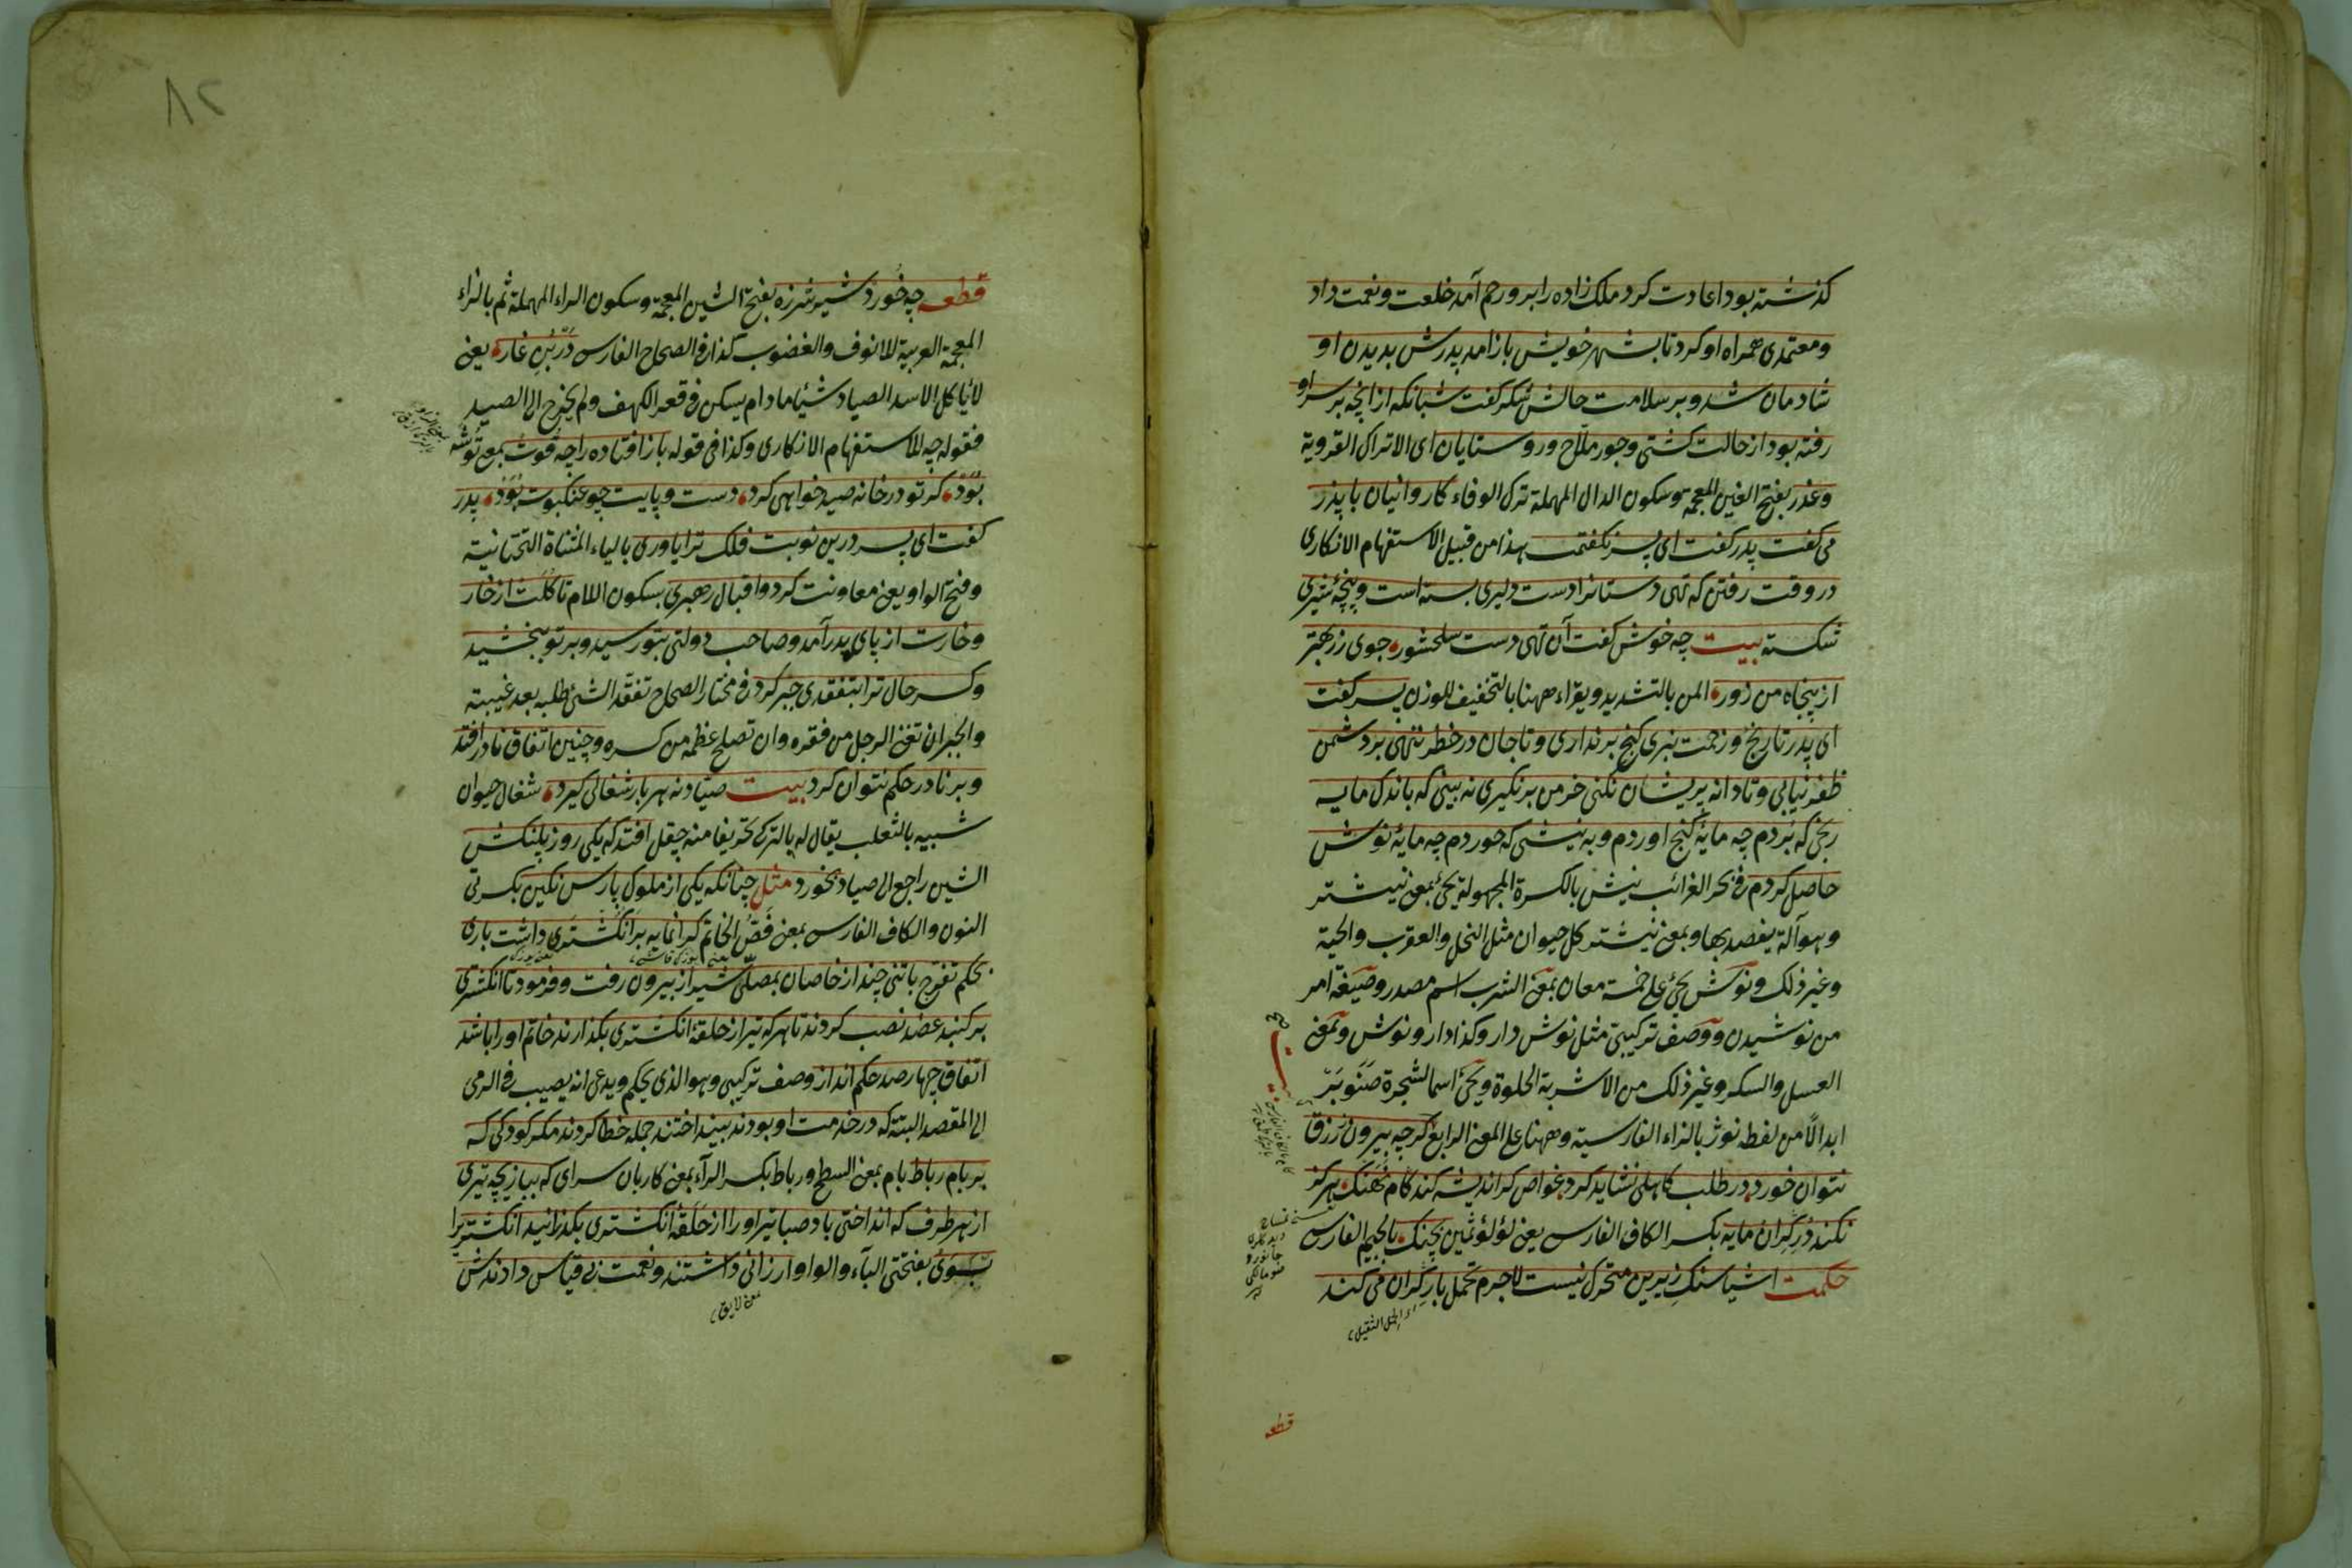 کذشته بود اعادت کرد ملک زاده را برو رحم آمد خلعت و نعمت داد
و معتمدی همراه او کرد تا بشهر خویش باز امد پدرش بدیدن او
شادمان شد و بر سلامت حالش شکر کفت شبانکه از انچه بر سر او
رفته بود از حالت کشتی و جور ملّاح و روستایان ای الاتراک القرویة
وغدر بفتح الغین المعجمة وسکون الدال المهملة ترک الوفاء کاروانیان با پدر
می کفت پدر کفت ای پسر نکفتمت هذا من قبیل الاستفهام الانکاری
در وقت رفتن که تهی دستانرا دست دلیری بسته است و پنجۀ شیری
شکسته بیت چه خوش کفت آن تهی دست سلحشور جوی زر بهتر
از پنجاه من زور المن بالتشدید ویقراء ههنا بالتخفیف للوزن پسر کفت
ای پدر تا رنج و زحمت نبری کنج برنداری و تا جان در خطر ننهی بر دشمن
ظفر نیابی و تا دانه پریشان نکنی خرمن برنکیری نه بینی که باندک مایه
رنجی که بردم چه مایۀ کنج اوردم و به نیشی که خوردم چه مایۀ نوش
حاصل کردم فی بحر الغرائب نیش بالکسرة المجهولة یجئ بمعنی نیشتر
وهو آلة یفصد بها وبمعنی نیشتر کل حیوان مثل النحل والعقرب والحیة
وغیر ذلک ونوش یجئ علی خمسة معان بمعنی الشرب اسم مصدر وصیغة امر
من نوشیدن ووصف ترکیبی مثل نوش دار وکذا دارو نوش وبمعنی
العسل والسکر وغیر ذلک من الاشربة الحلوة ویجئ اسما لشجرة صنوبر
ابدالًا من لفظه نوژ بالزاء الفارسیة وههنا علی المعنی الرابع کرچه بیرون ز رزق
نتوان خورد در طلب کاهلی نشاید کرد غواص کر اندیشه کند کام نهنک هرکز
نکند دُرّ کران مایه بکسر الکاف الفارسی یعنی لؤلؤ ثمین بچنک بالجیم الفارسی
حکمت اسیا سنک زیرین متحرک نیست لاجرم تحمل بار کران می کند
ای الحمل الثقیل
قطعه
٨٢
قطعه چه خورد شیر شرزه بفتح الشین المعجمة وسکون الراء المهملة ثم بالزاء
المعجمة العربیة للانوف والغضوب کذا فی الصحاح الفارسی در بُنِ غار یعنی
لا یأکل الاسد الصیاد شیئا مادام یسکن فی قعر الکهف ولم یخرج الی الصید
فقوله چه للاستفهام الانکاری وکذا فی قوله باز افتاده را چه قوت بمعنی توشه
بود کر تو در خانه صید خواهی کرد دست و پایت چو عنکبوت بود پدر
کفت ای پسر درین نوبت فلک ترا یاوری بالیاء المثناة التحتانیة
وفتح الواو یعنی معاونت کرد و اقبال رهبری بسکون اللام تا کلت از خار
و خارت از پای بدر آمد و صاحب دولتی بتو رسید و بر تو ببخشید
و کسر حال ترا بتفقدی جبر کرد فی مختار الصحاح تفقد الشئ طلبه بعد غیبته
والجبر ان تغنی الرجل من فقره وان تصلح عظمه من کسره و چنین اتفاق نادر افتد
و بر نادر حکم نتوان کرد بیت صیاد نه هر بار شغالی کیرد شغال حیوان
شبیه بالثعلب یقال له بالترکی تحریفا منه چقل افتد که یکی روز پلنکش
الشین راجع الی صیاد بخورد مثل چنانکه یکی از ملوک پارس نکین بکسرتی
النون والکاف الفارسی بمعنی فَصّ الخاتم کرانمایه بر انکشتری داشت باری
بحکم تفرج با تنی چند از خاصان بمصلّی شیراز بیرون رفت و فرمود تا انکشتری
بر کنبد عضد نصب کردند تا هرکه تیر از حلقۀ انکشتری بکذارند خاتم او را باشد
اتفاق چهارصد حکم انداز وصف ترکیبی وهو الذی یحکم ویدعی انه یصیب فی الرمی
الی المقصد البتة که در خدمت او بودند بینداختند جمله خطا کردند مکر کودکی که
بر بام رباط بام بمعنی السطح ورباط بکسر الرآء بمعنی کاربان سرای که ببازیچه تیری
از هر طرف که انداختی باد صبا تیر او را از حلقۀ انکشتری بکذرانید انکشتریرا
بَوَی بفتحتی البآء والواو ارزانی داشتند و نعمت بی قیاس دادندش